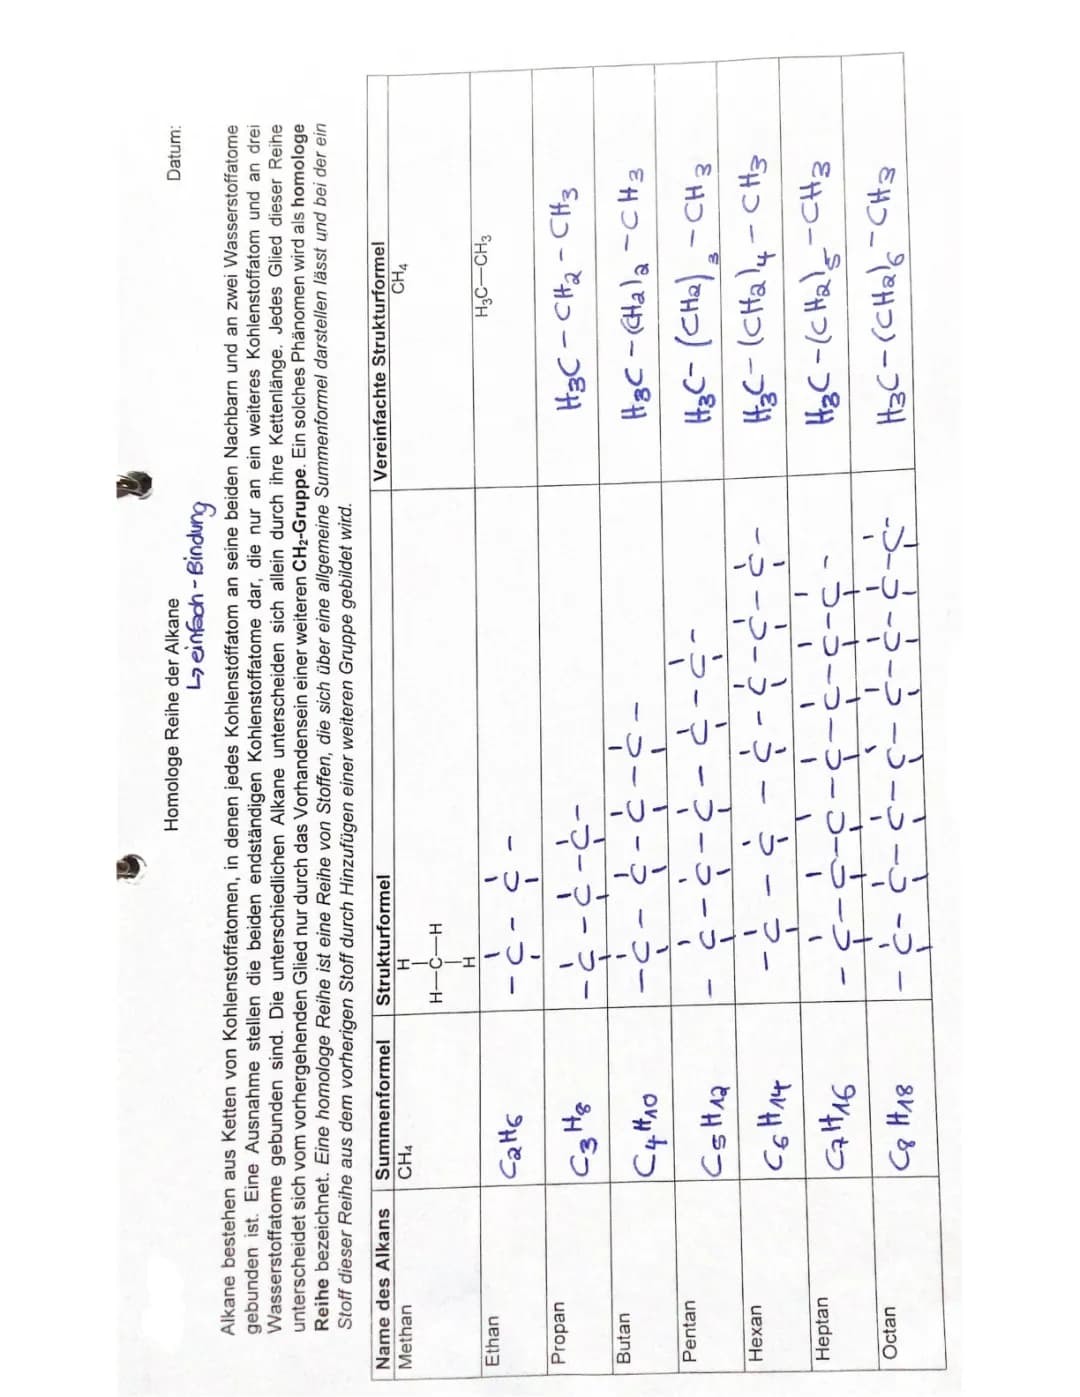 Homologe Reihe der Alkane Datum:
↳ einfach-Bindung
Alkane bestehen aus Ketten von Kohlenstoffatomen, in denen jedes Kohlenstoffatom an seine beiden Nachbarn und an zwei Wasserstoffatome
gebunden ist. Eine Ausnahme stellen die beiden endständigen Kohlenstoffatome dar, die nur an ein weiteres Kohlenstoffatom und an drei
Wasserstoffatome gebunden sind. Die unterschiedlichen Alkane unterscheiden sich allein durch ihre Kettenlänge. Jedes Glied dieser Reihe
unterscheidet sich vom vorhergehenden Glied nur durch das Vorhandensein einer weiteren CH₂-Gruppe. Ein solches Phänomen wird als homologe
Reihe bezeichnet. Eine homologe Reihe ist eine Reihe von Stoffen, die sich über eine allgemeine Summenformel darstellen lässt und bei der ein
Stoff dieser Reihe aus dem vorherigen Stoff durch Hinzufügen einer weiteren Gruppe gebildet wird.
Name des Alkans Summenformel Strukturformel Vereinfachte Strukturformel
Methan CH₄ H CH₄
H—C—H
H
Ethan C₂H₆ -C-C- H₃C—CH₃
Propan C₃H₈ -C-C-C- H₃C-CH₂-CH₃
Butan C₄H₁₀ -C-C-C-C- H₃C-(CH₂)₂-CH₃
Pentan C₅H₁₂ -C-C-C-C-C- H₃C-(CH₂)₃-CH₃
Hexan C₆H₁₄ -C-C-C-C-C-C- H₃C-(CH₂)₄-CH₃
Heptan C₇H₁₆ -C-C-C-C-C-C-C- H₃C-(CH₂)₅-CH₃
Octan C₈H₁₈ -C-C-C-C-C-C-C-C- H₃C-(CH₂)₆-CH₃